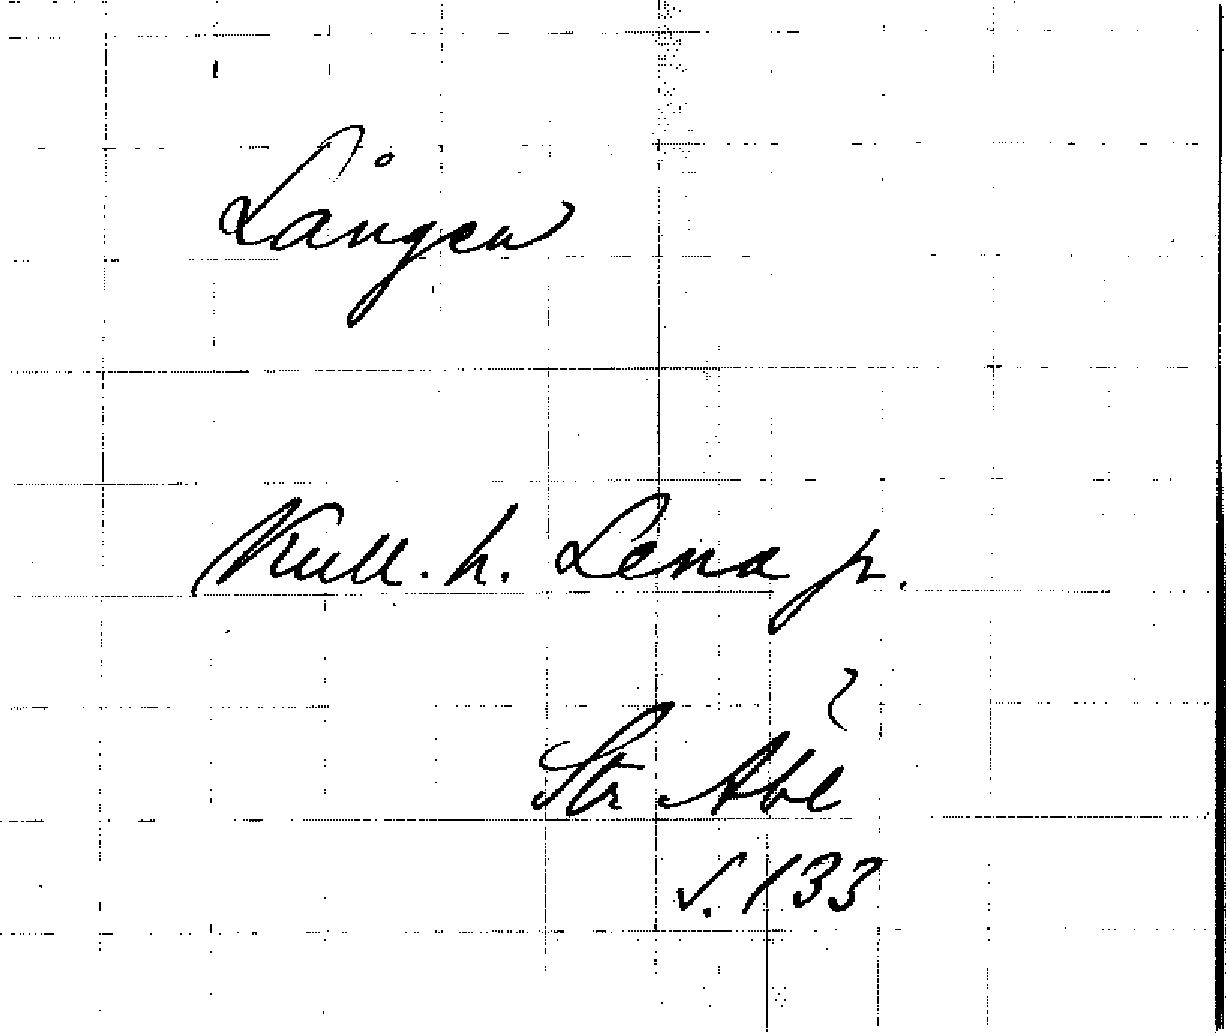 Lången
Kull. h. Lena p.
Str Abl
s. 133